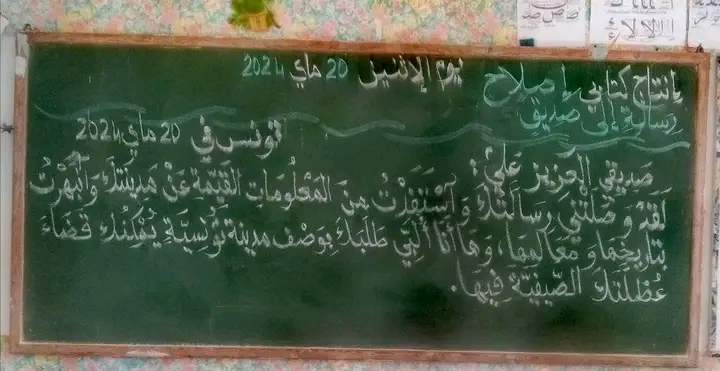 يوم الإثنين 20 ماي 2024
إنتاج كتابي إصلاح
رسالة إلى صديق
تونس في 20 ماي 2024
صديقي العزيز علي:
لَقَدْ وَصَلَتْنِي رِسَالَتُكَ وَاسْتَفَدْتُ مِنَ المَعْلُومَاتِ القَيِّمَةِ عَنْ مَدِينَتِكَ وَانْبَهَرْتُ
بِتَارِيخِهَا وَمَعَالِمِهَا، وَهَا أَنَا أُلَبِّي طَلَبَكَ بِوَصْفِ مدينة تُونُسِيَّةٍ يُمْكِنُكَ قَضَاءَ
عُطْلَتِكَ الصَّيْفِيَّةِ فِيهَا.